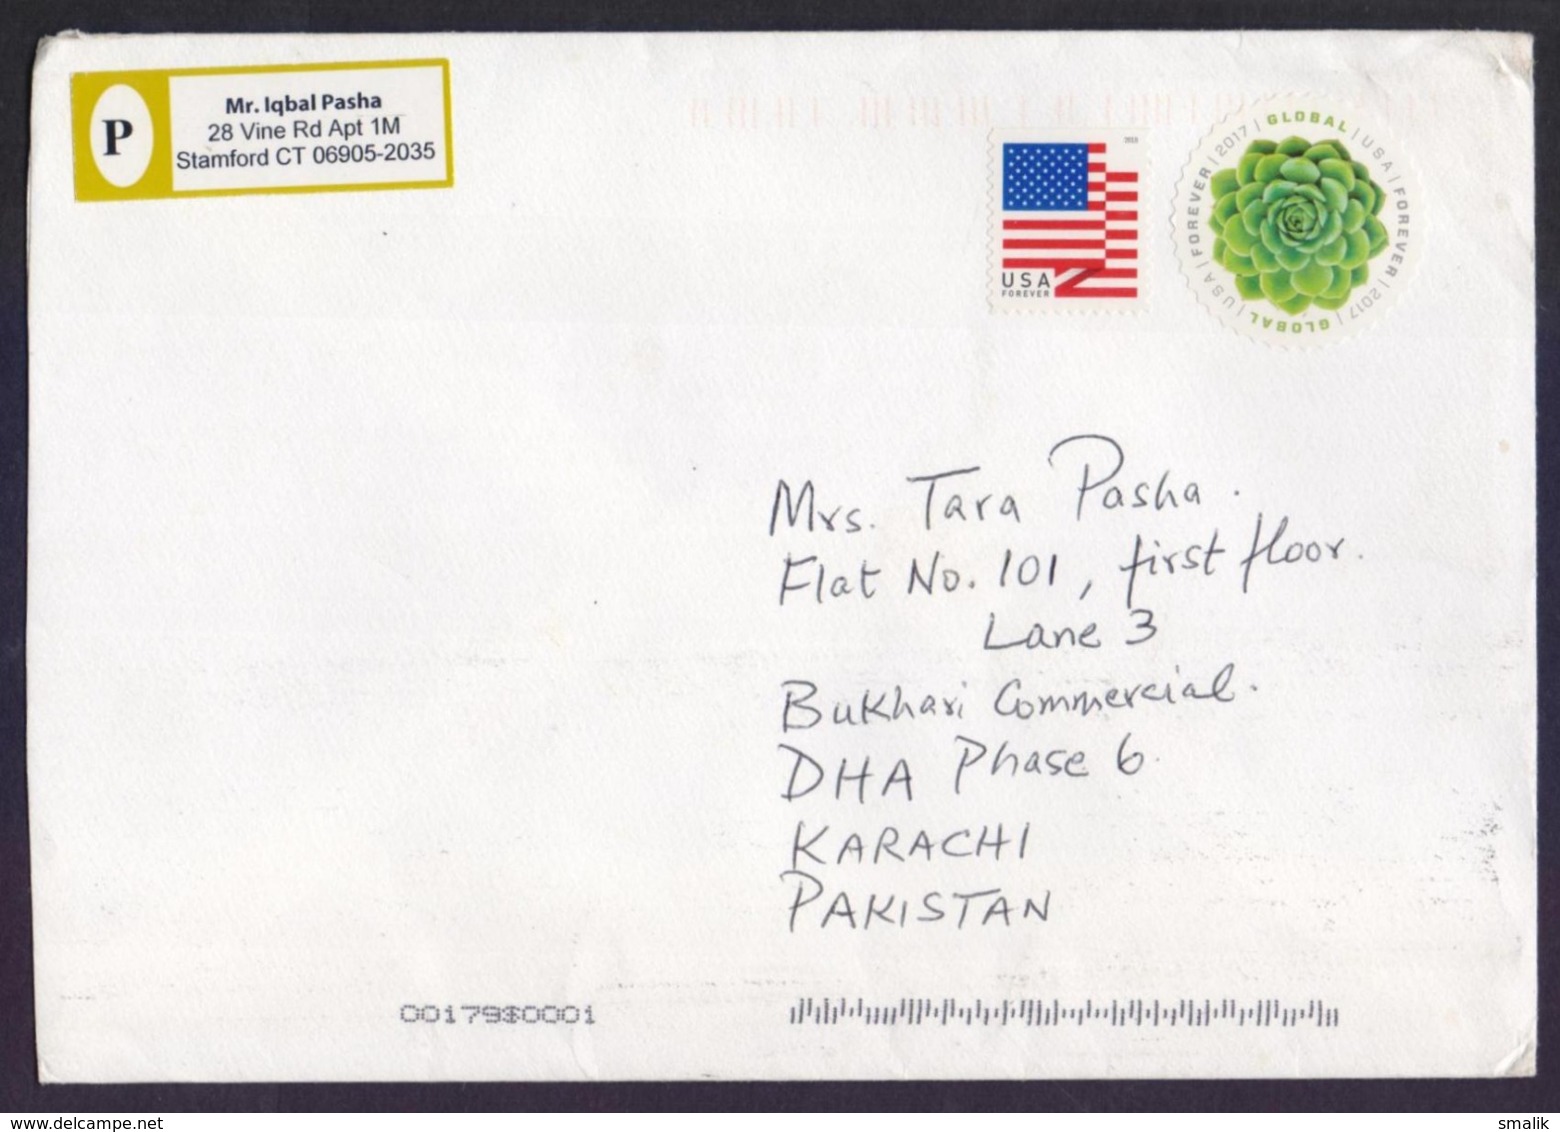 P
Mr. Iqbal Pasha
28 Vine Rd Apt 1M
Stamford CT 06905-2035
USA
FOREVER
GLOBAL | USA | FOREVER | 2017 | GLOBAL | USA | FOREVER | 2017 |
Mrs. Tara Pasha.
Flat No. 101, first floor.
Lane 3
Bukhari Commercial.
DHA Phase 6.
KARACHI
PAKISTAN
00179$0001
www.delcampe.net
smalik